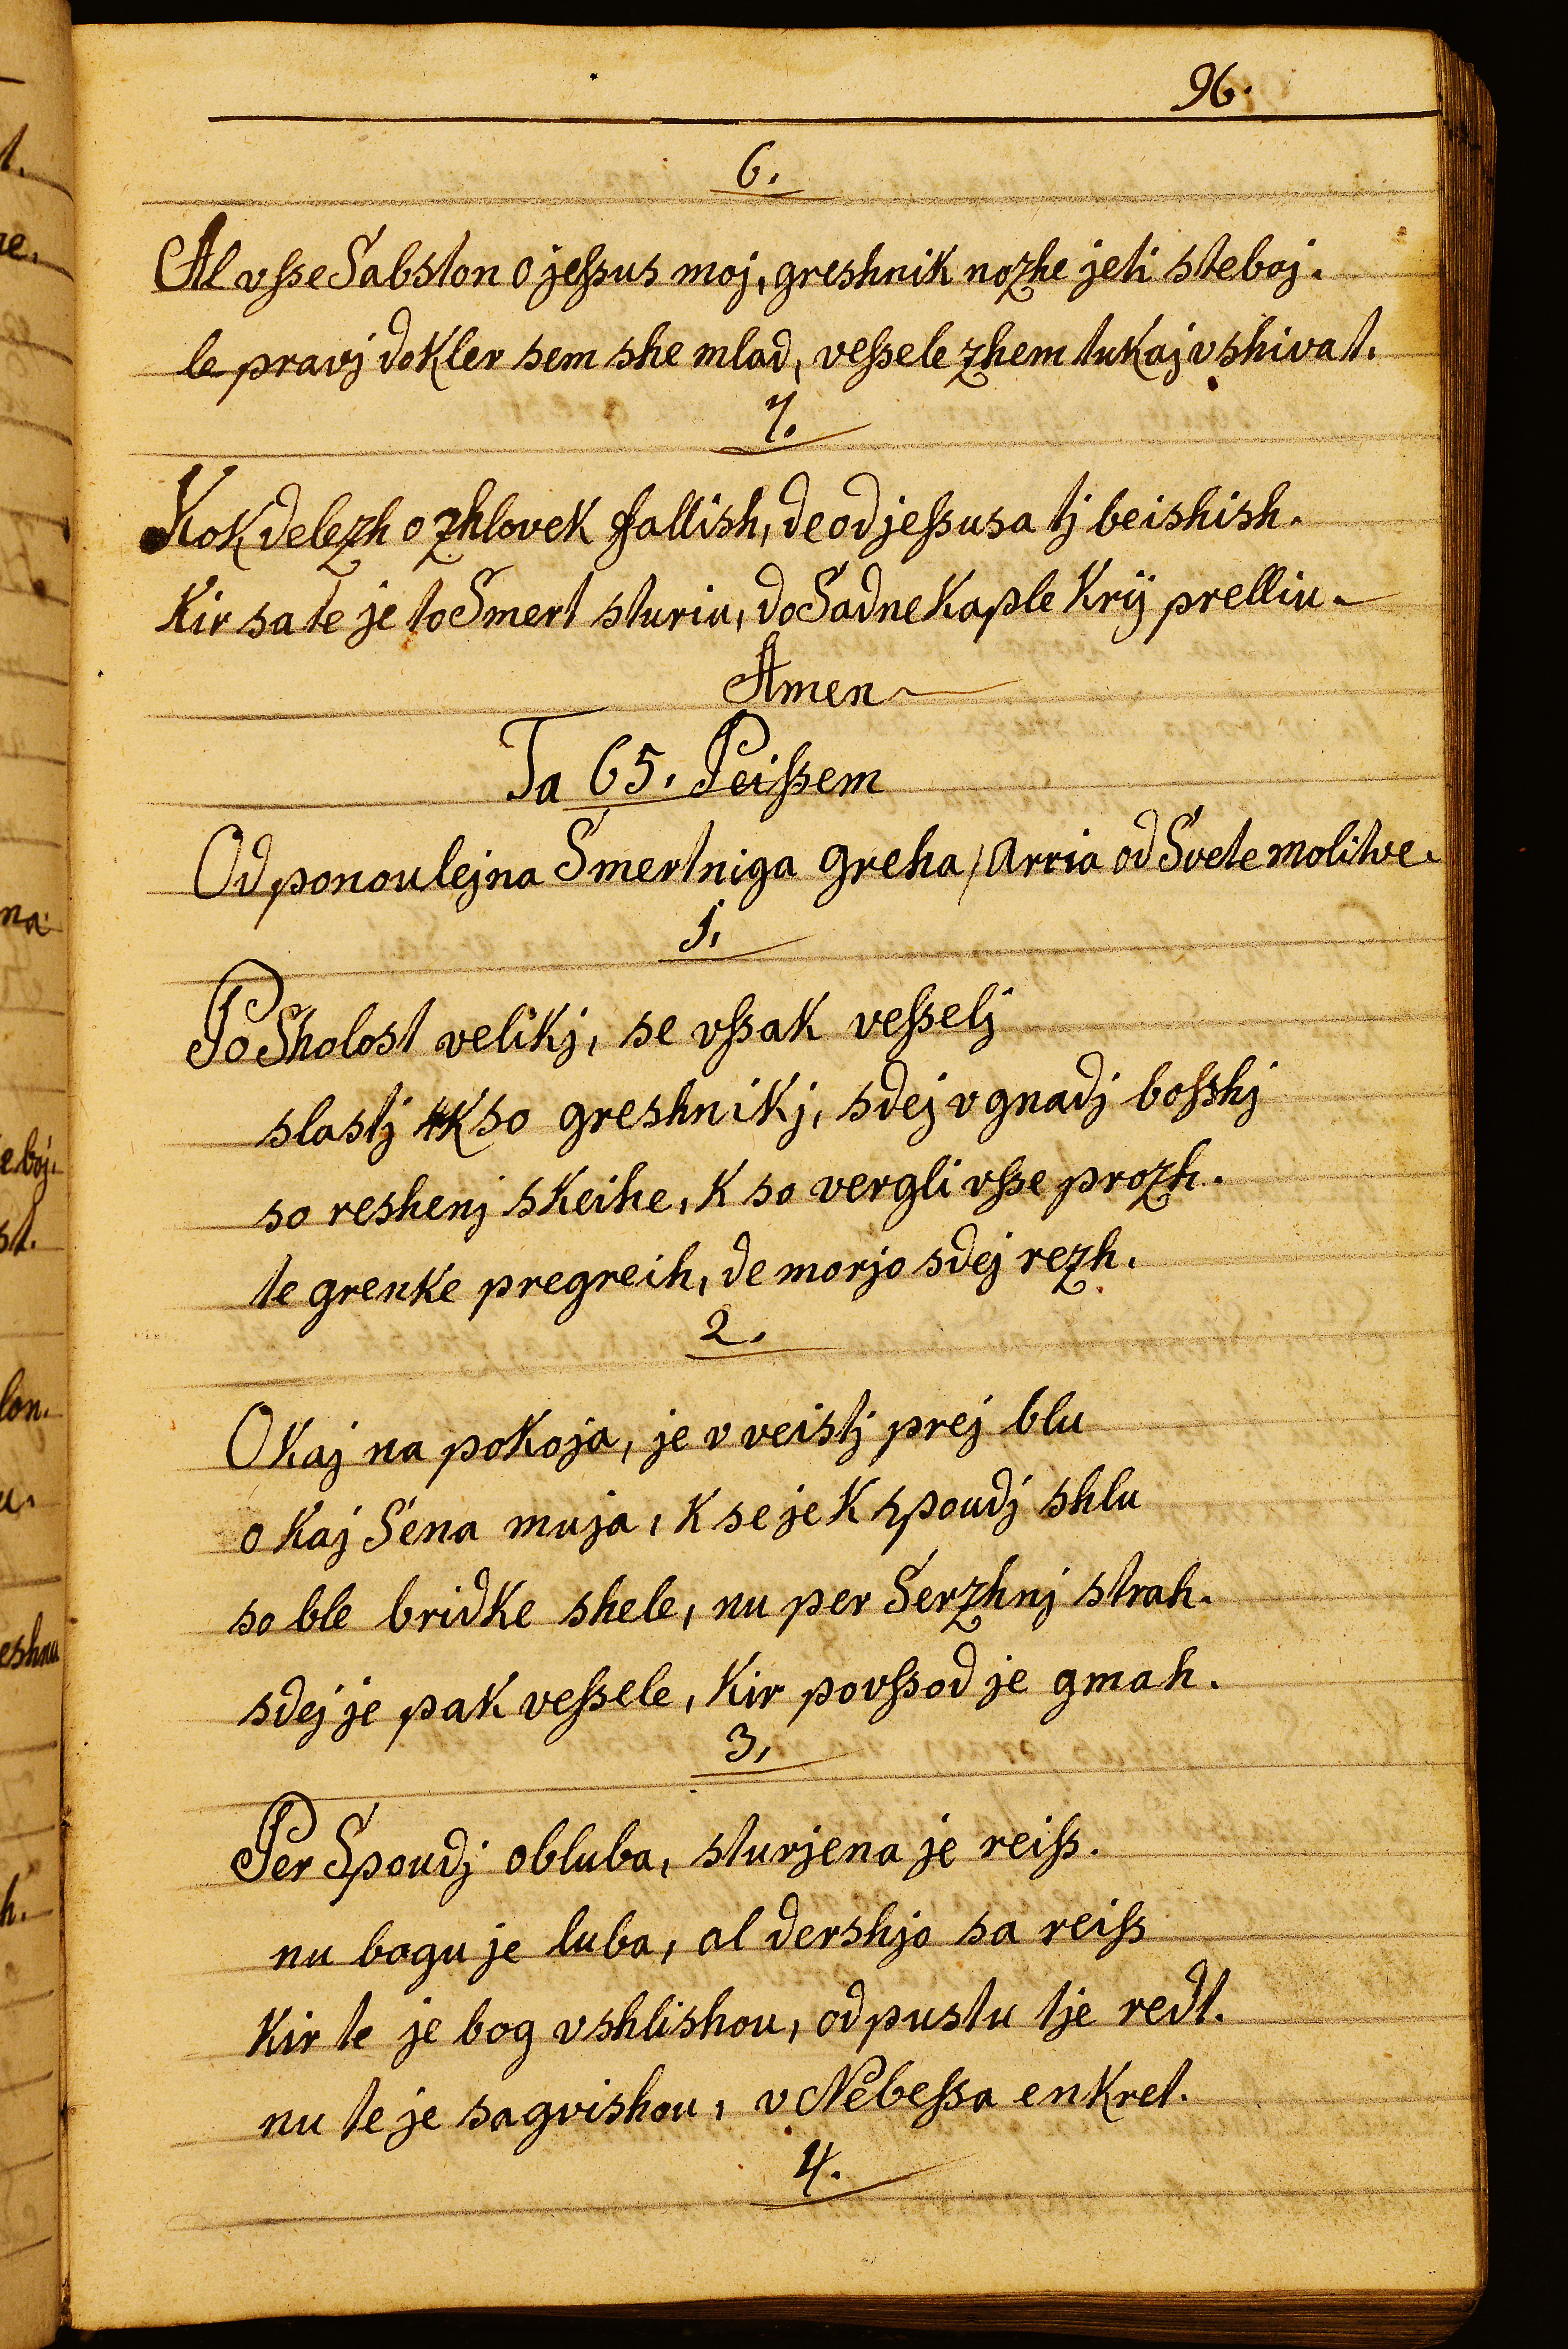 96.
6.
Al vſse Sabston o jeſsus moj, greshnik nozhe jeti steboj.
le pravj dokler sem she mlad, veſsele zhem tukaj vshivat.
7.
Kok delezh o zhlovek fallish, de od jeſsusa tj beishish.
Kir sa te je to Smert sturiu, do Sadne kaple Krÿ prelliu.
Amen
Ta 65. Peiſsem
Od ponoulejna Smertniga greha / arria od Svete molitve.
1.
Po Sholost velikj, se vſsak veſselj
slastj k so greshnikj, sdej v gnadj boſshj
so reshenj skeihe, k so vergli vſse prozh.
te grenke pregreih, de morjo sdej rezh.
2.
O kaj na pokoja, je v veistj prej blu
o kaj Sena muja, k se je k spoudj shlu
so ble bridke shele, nu per Serzhnj strah.
sdej je pak veſsele, kir povſsod je gmah.
3.
Per Spoudj obluba, sturjena je reiſs.
nu bogu je luba, al dershjo sa reiſs
kir te je bog vshlishou, odpustu tje redt.
nu te je sagvishou, v Nebeſsa enkret.
4.
t.
na
eboj.
st.
lon.
u.
eshnu
h.